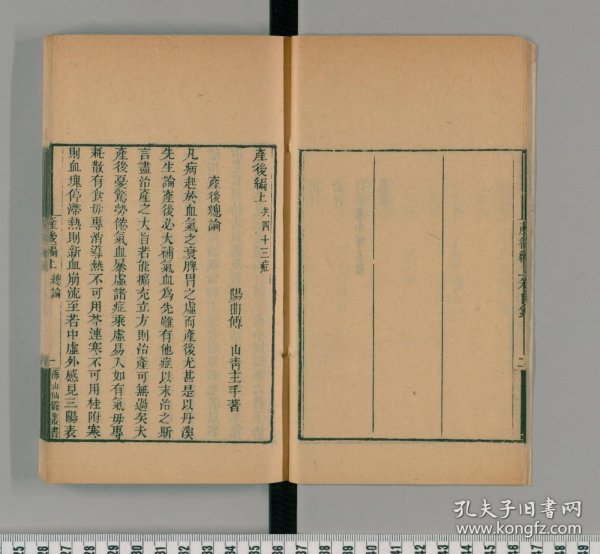 產後編上 共四十三症
陽曲傅 山青主手著
產後總論
凡病起於血氣之衰脾胃之虛而產後尤甚是以丹溪
先生論產後必大補氣血為先雖有他症以末治之斯
言盡治產之大旨若能擴充立方則治產可無過矣夫
產後憂驚勞倦氣血暴虛諸症乘虛易入如有氣毋專
耗散有食毋專消導熱不可用芩連寒不可用桂附寒
則血塊停滯熱則新血崩流至若中虛外感見三陽表
產後編上 總論
一 海山仙館叢書
二
孔夫子旧书网
www.kongfz.com
25 26 27 28 29 30 31 32 33 34 35 36 37 38 39 40 41 42 43 44 45 46 47 48 49